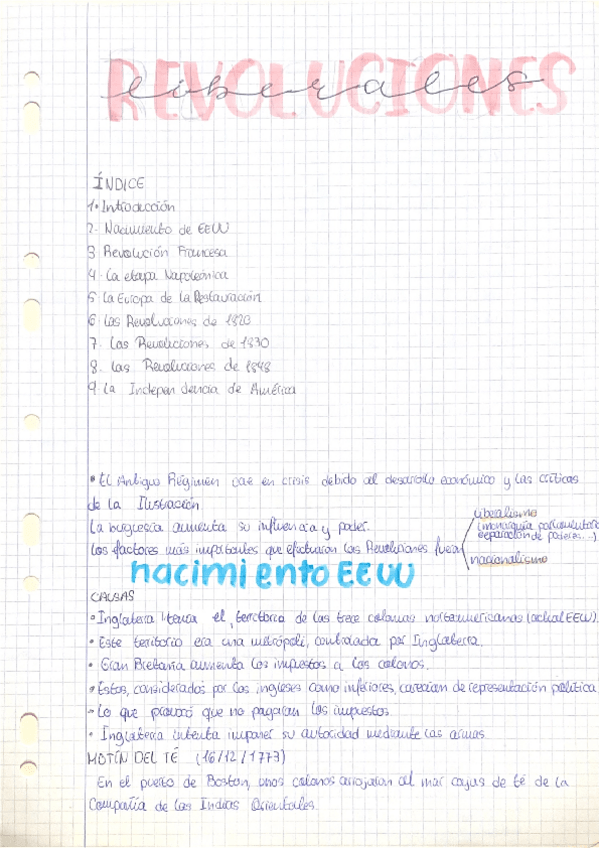 REVOLUCIONES
liberales
ÍNDICE
1. Introducción
2. Nacimiento de EEUU
3 Revolución Francesa
4. La etapa Napoleónica
5 La Europa de la Restauración
6. Las Revoluciones de 1820
7. Las Revoluciones de 1830
8. Las Revoluciones de 1848
9 La Independencia de América
• El Antiguo Régimen cae en crisis debido al desarollo económico y las críticas
de la Ilustración
La burguesía aumenta su influencia y poder.
Los factores más importantes que efectuaron las Revoluciones fueron
liberalismo
(monarquía parlamentaria
separación de poderes...)
nacionalismo
nacimiento EEUU
CAUSAS
• Inglaterra tenía el territorio de las trece colonias norteamericanas (actual EEUU).
• Este territorio era una metrópoli, controlada por Inglaterra.
• Gran Bretaña aumenta los impuestos a los colonos.
• Estos, considerados por los ingleses como inferiores, carecían de representación política
• Lo que provocó que no pagaran los impuestos
• Inglaterra intenta imponer su autoridad mediante las armas
MOTÍN DEL TÉ (16/12/1773)
En el puerto de Boston, unos colonos arrojaron al mar cajas de té de la
Compañía de las Indias Orientales